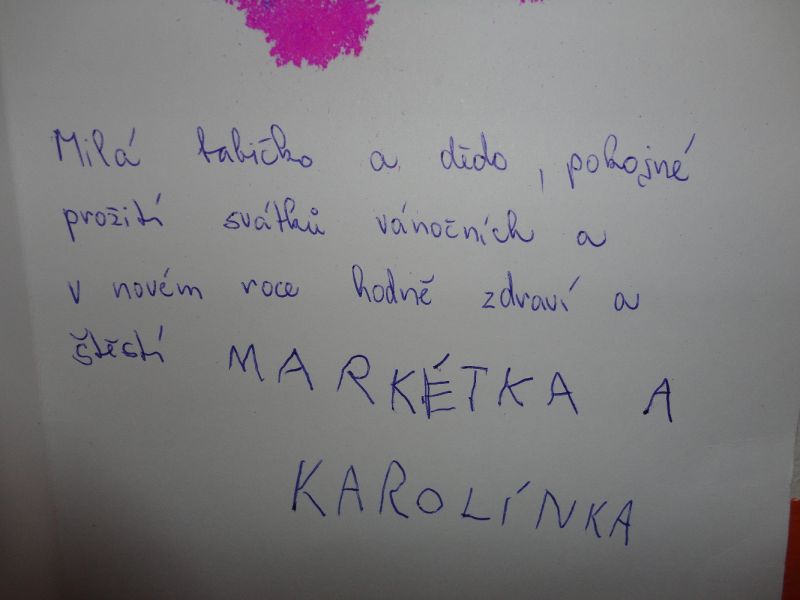 Milá babičko a dědo, pokojné
prožití svátků vánočních a
v novém roce hodně zdraví a
štěstí MARKÉTKA A
KAROLÍNKA